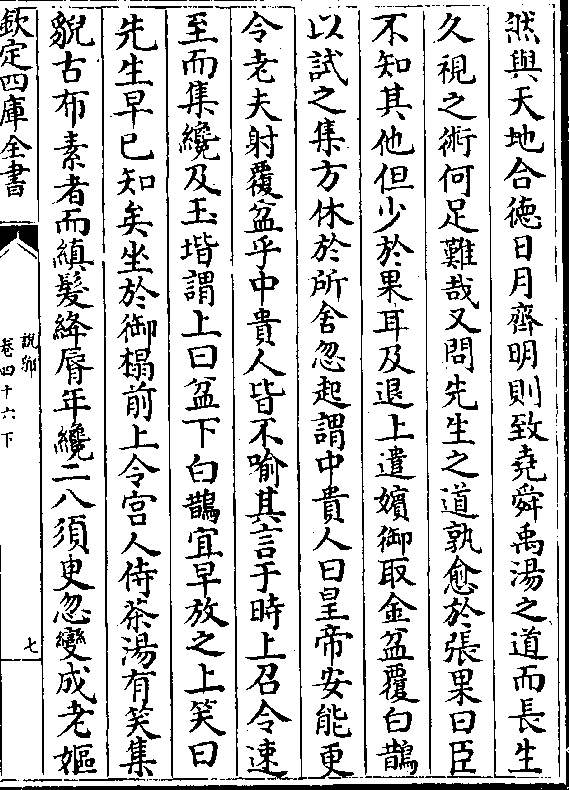 然與天地合德日月齊明則致堯舜禹湯之道而長生
久視之術何足難哉又問先生之道孰愈於張果曰臣
不知其他但少於果耳及退上遣嬪御取金盆覆白鵲
以試之集方休於所舍忽起謂中貴人曰皇帝安能更
令老夫射覆盆乎中貴人皆不喻其言于時上召令速
至而集纔及玉堦謂上曰盆下白鵲宜早放之上笑曰
先生早已知矣坐於御榻前上令宫人侍茶湯有笑集
貌古布素者而縝髮絳脣年纔二八須臾忽變成老嫗
欽定四庫全書
說郛
卷四十六下
七